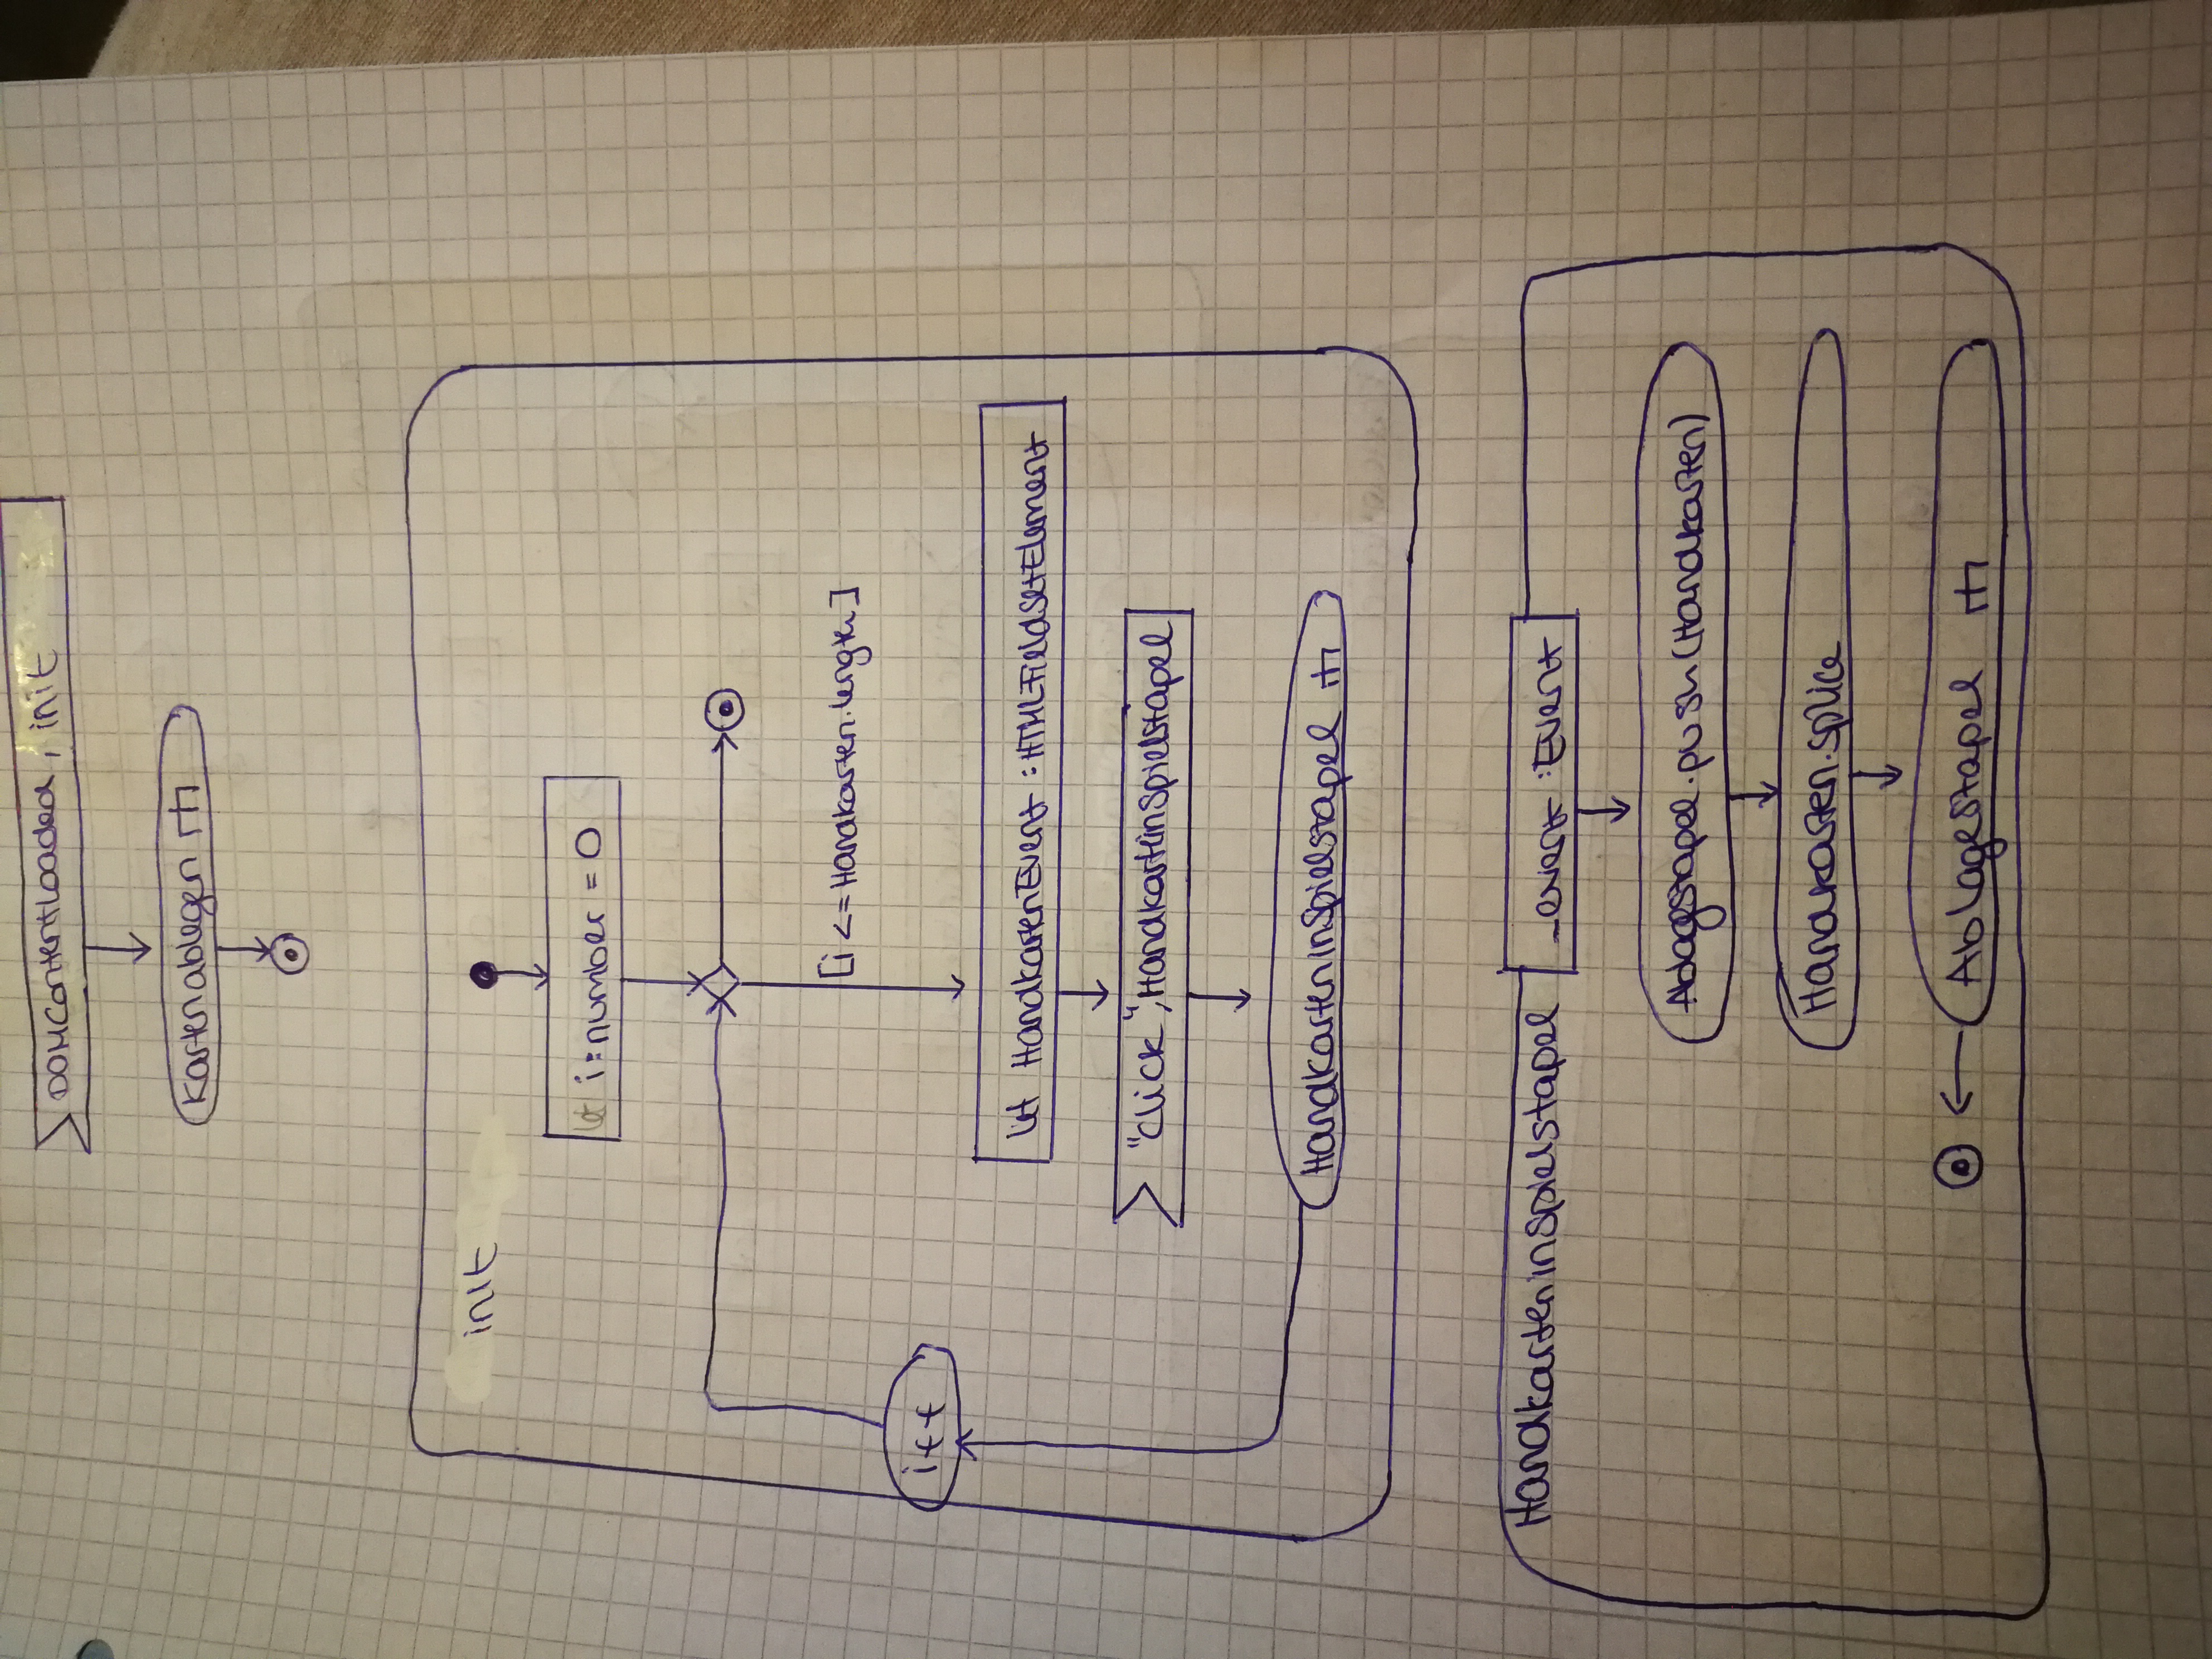 DOMContentLoaded, init
Kartenablegen
init
let i:number = 0
[i <= Handkarten.length]
let HandkartenEvent : HTMLFieldSetElement
"click", HandkartinSpielstapel
HandkarteninSpielstapel
i++
HandkarteninSpielstapel
_event :Event
Ablagestapel.push(Handkarten)
Handkarten.splice
Ablagestapel